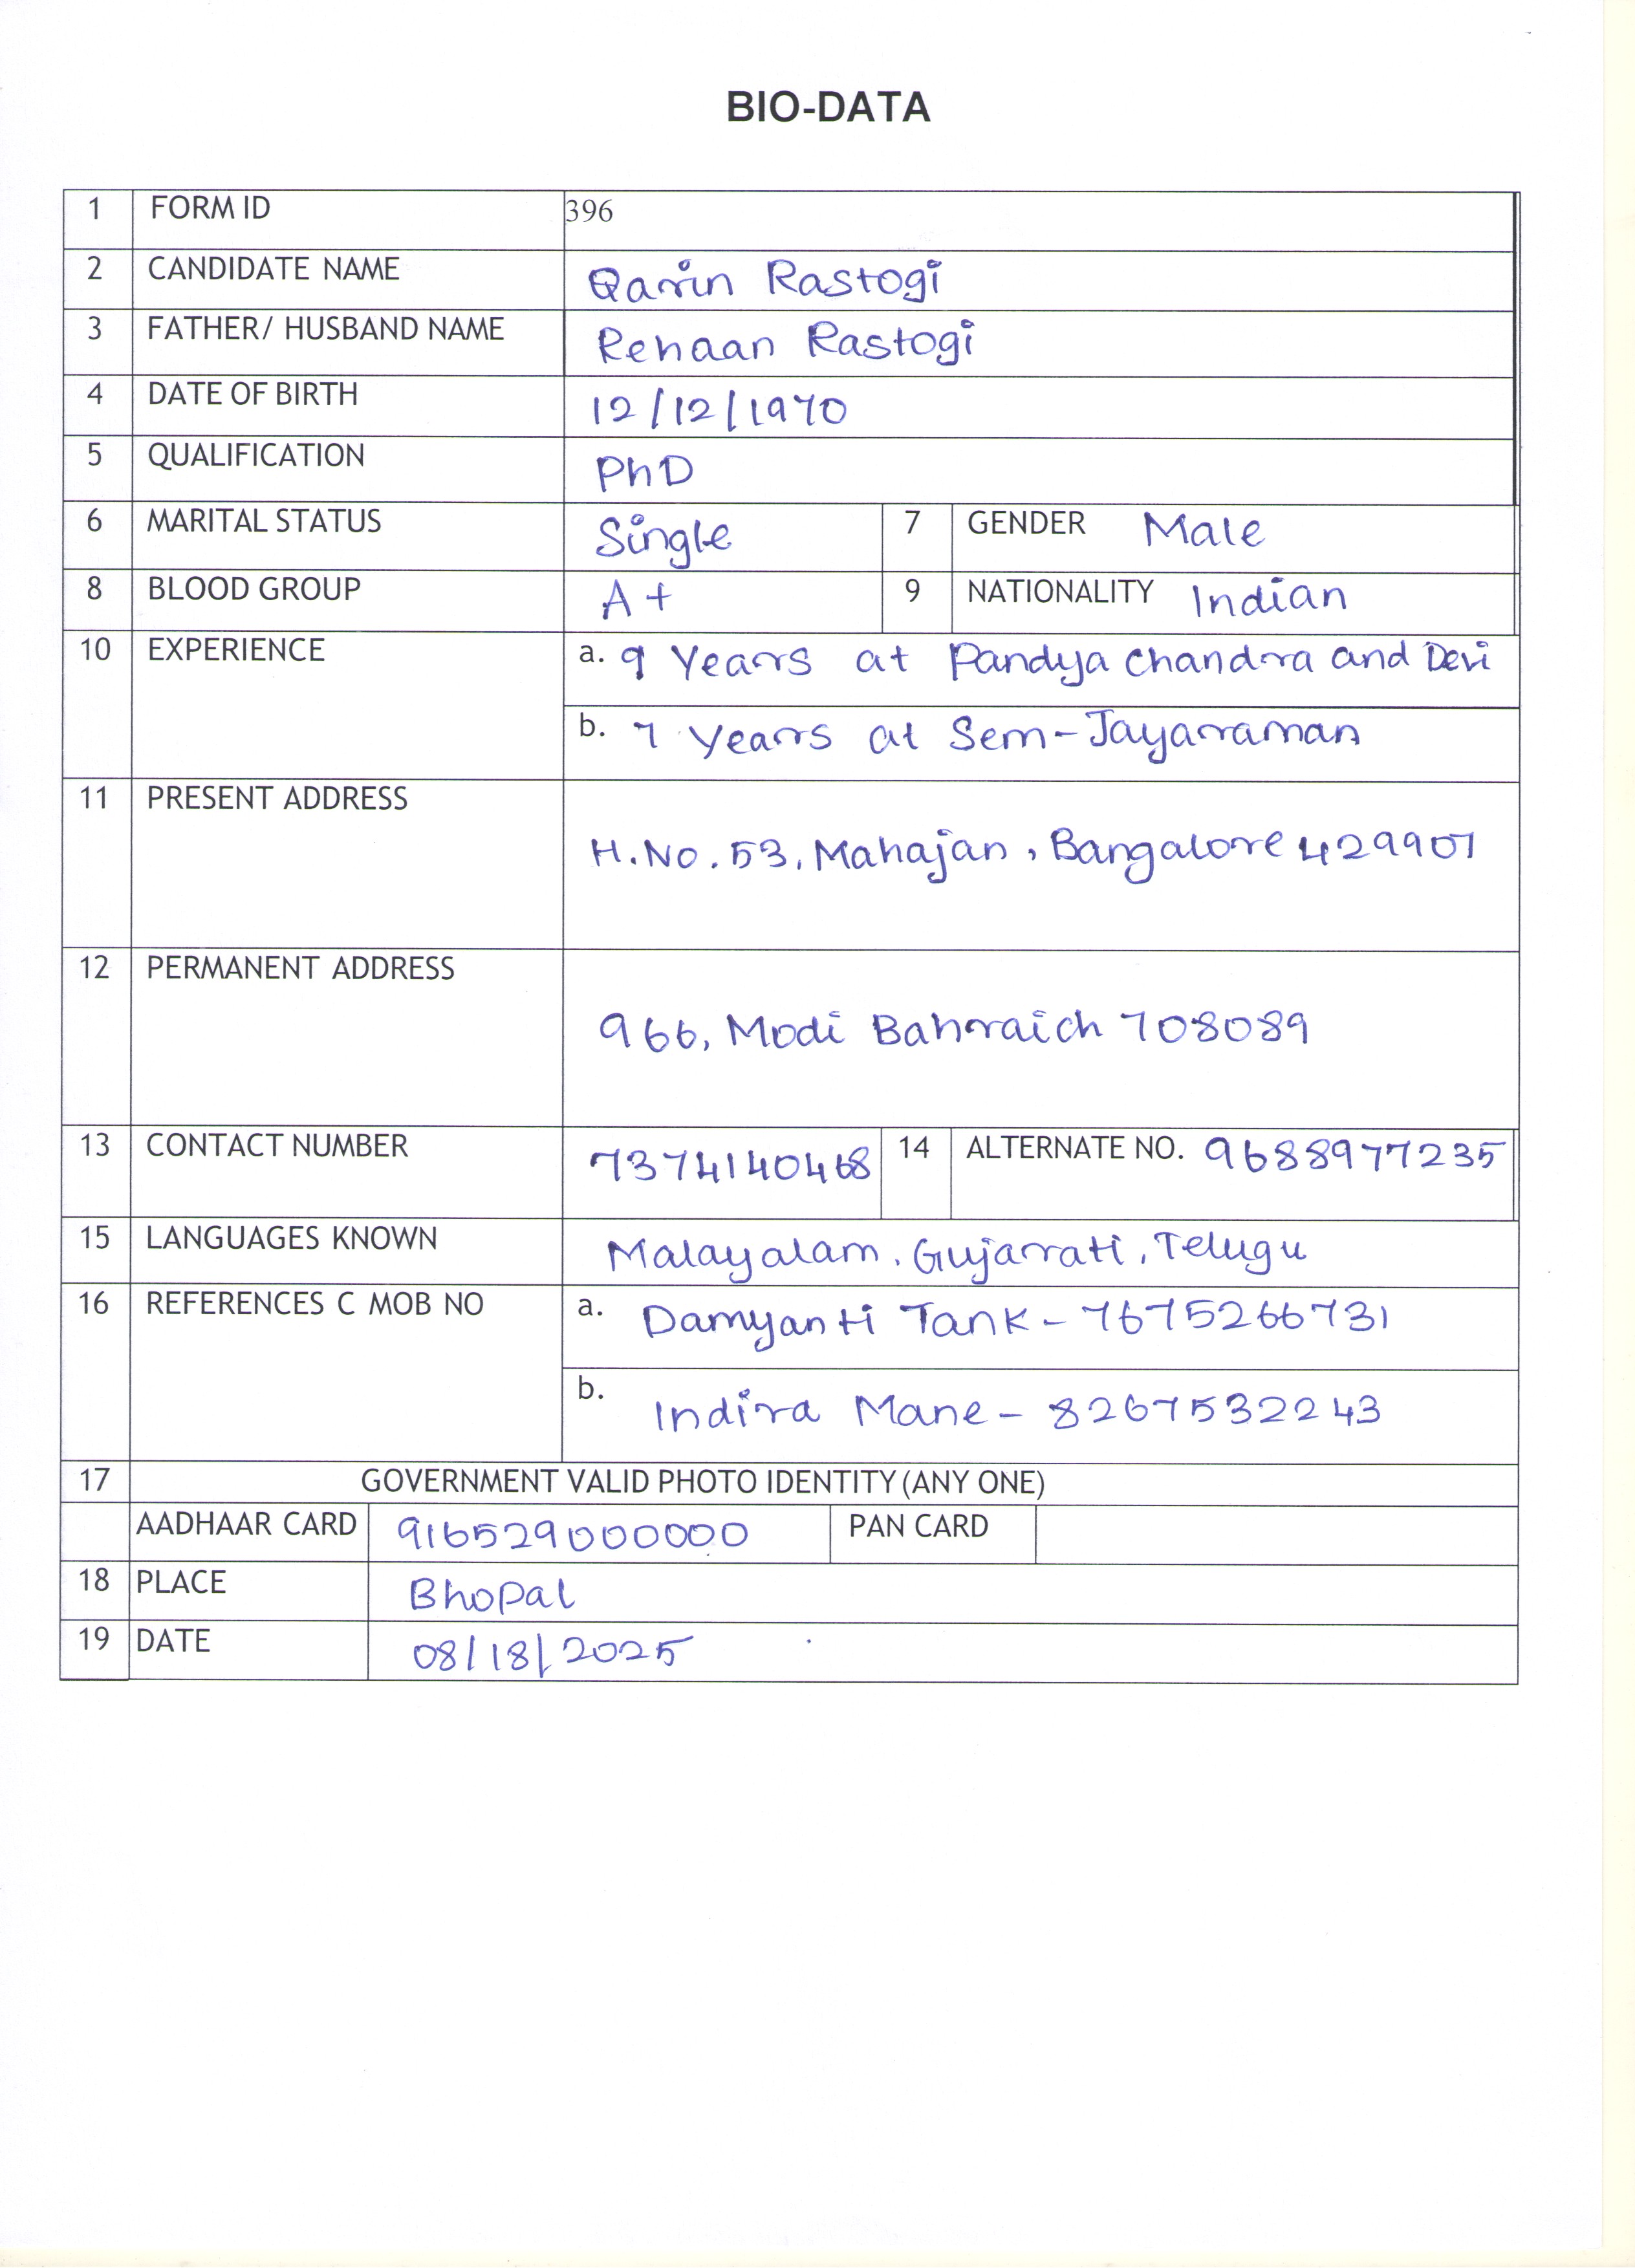 BIO-DATA
1 FORM ID 396
2 CANDIDATE NAME Qarin Rastogi
3 FATHER/ HUSBAND NAME Rehaan Rastogi
4 DATE OF BIRTH 12/12/1970
5 QUALIFICATION PhD
6 MARITAL STATUS Single 7 GENDER Male
8 BLOOD GROUP A+ 9 NATIONALITY Indian
10 EXPERIENCE a. 9 Years at Pandya Chandra and Devi
b. 7 Years at Sem-Jayaraman
11 PRESENT ADDRESS
H.No. 53, Mahajan, Bangalore 429907
12 PERMANENT ADDRESS
966, Modi Bahraich 708089
13 CONTACT NUMBER 7374140468 14 ALTERNATE NO. 9688977235
15 LANGUAGES KNOWN Malayalam, Gujarati, Telugu
16 REFERENCES C MOB NO a. Damyanti Tank - 7675266731
b. Indira Mane - 8267532243
17 GOVERNMENT VALID PHOTO IDENTITY (ANY ONE)
AADHAAR CARD 916529000000 PAN CARD
18 PLACE Bhopal
19 DATE 08/18/2025